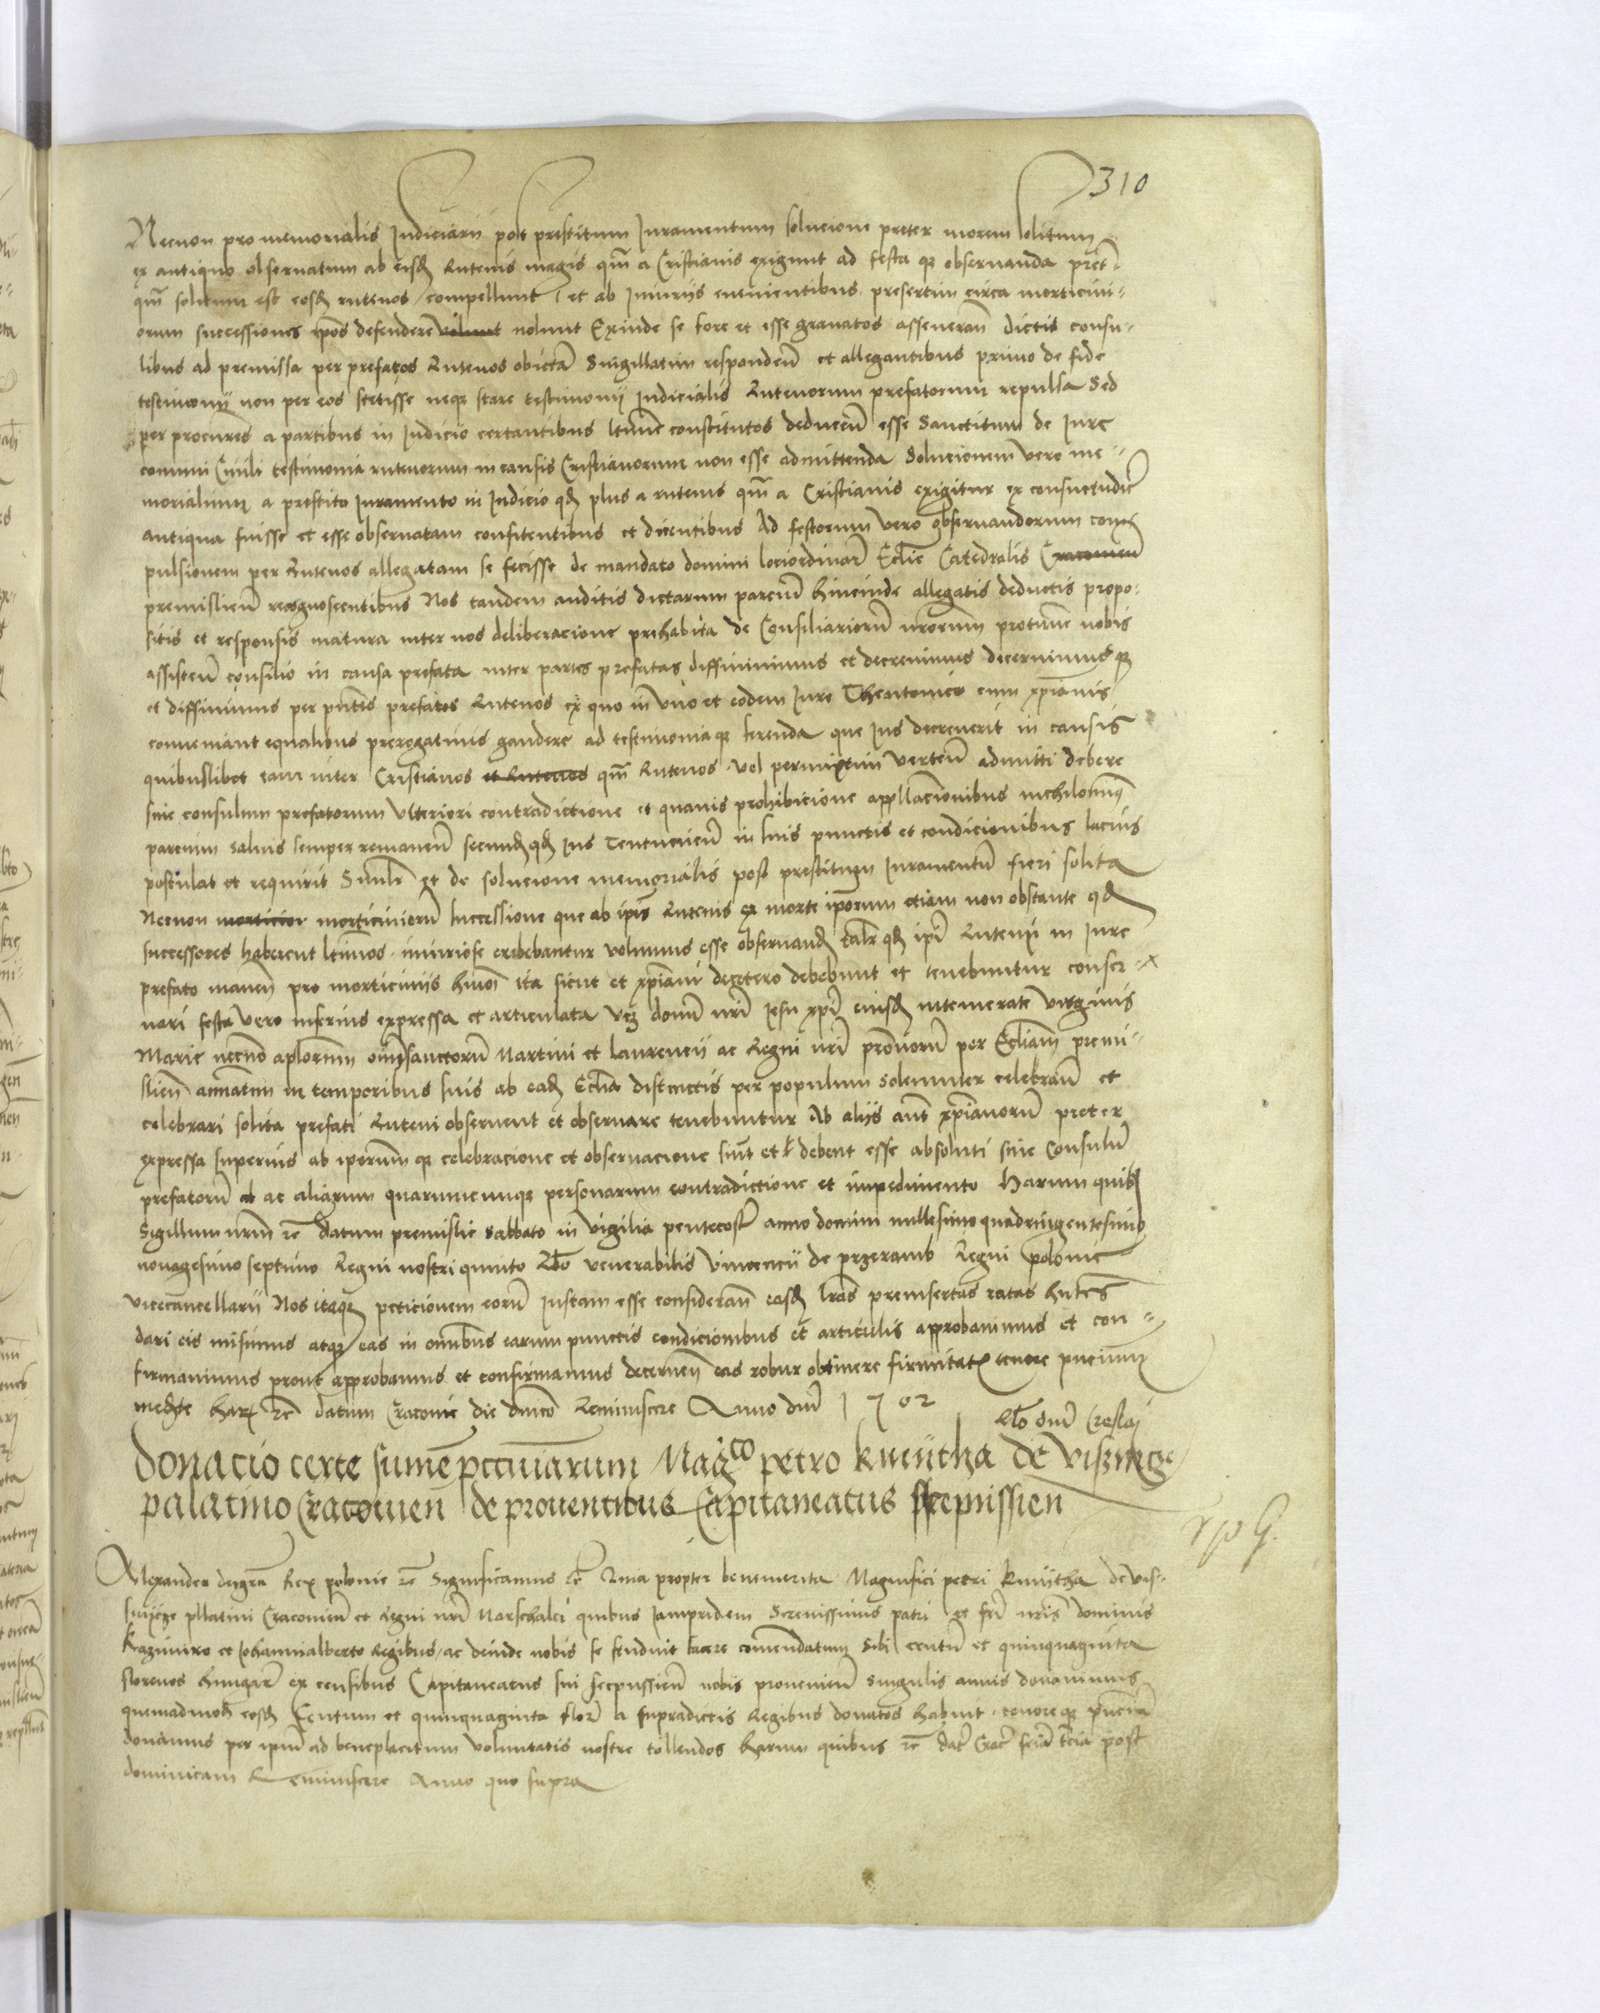 310
Necnon pro memorialis Judiciarii post prestitum Juramentum solucione preter morem solitum
ex antiquo obseruatum ab eisdem Rutenis magis quam a Cristianis exigunt ad festa que obseruanda preter
quam solitum est eosdem rutenos compellunt et ab Iniuriis euenientibus presertim circa morticini-
orum successiones ipsos defendere volunt nolunt Exinde se fore et esse grauatos asseueran dictis consu-
libus ad premissa per prefatos Rutenos obiecta Singillatim responden et allegantibus primo de fide
testimonii non per eos stetisse neque stare testimonii Judicialis Rutenorum prefatorum repulsa Sed
per procures a partibus in Judicio certantibus ltime constitutos deducen esse Sanctitum de Jure
communi Ciuili testimonia rutenorum in causis Cristianorum non esse admittenda Solucionem vero me-
morialium a prestito Juramento in Judicio quod plus a rutenis quam a Cristianis exigitur ex consuetudine
antiqua fuisse et esse obseruatam confitentibus et dicentibus Ad festorum vero obseruandorum com-
pulsionem per Rutenos allegatam se fecisse de mandato domini lociordinarii Ecclie Catedralis Cracouien
premislien recognoscentibus Nos tandem auditis dictarum parcium hincinde allegatis deductis propo-
sitis et responsis matura inter nos deliberacione prehabita de Consiliariorum nrorum protunc nobis
assisten consilio in causa prefata inter partes prefatas diffiniuimus et decreuimus decernimusque
et diffinimus per pntes prefatos Rutenos ex quo in vno et eodem Jure Theutonico cum xpianis
conueniant equalibus prerogatiuis gaudere ad testimoniaque ferenda que Jus decreuerit in causis
quibuslibet tam inter Cristianos et Rutenos quam Rutenos vel permixtim verten admitti debere
sine consulum prefatorum vlteriori contradictione et quauis prohibicione appllacionibus nichilominus
parcium saluis semper remanen secundum quod Jus Teutunicum in suis punctis et condicionibus lacius
postulat et requirit Similiter et de solucione memorialis post prestitum Juramentum fieri solita
Necnon morticior morticiniorum successione que ab ipsis Rutenis ex morte ipsorum etiam non obstante quod
successores haberent ltimos iniuriose exibebantur volumus esse obseruand taliter quod ipsi Ruteni in Jure
prefato manen pro morticiniis huiusmodi ita sicut et xpiani decetero debebunt et tenebuntur conser-
uari festa vero inferius expressa et articulata videlicet domini nri Jesu xpi eiusdem intemerate virginis
Marie necno aplorum omnium sanctorum Martini et Laurencii ac Regni nri pronorum per Eccliam premi-
slien annatim in temporibus suis ab eadem Ecclia distinctis per populum solemniter celebran et
celebrari solita prefati Ruteni obseruent et obseruare tenebuntur Ab aliis aut xpianorum preter
expressa superius ab ipsorumque celebracione et obseruacione sint et debent esse absoluti sine Consulum
prefatorum ab ac aliarum quarumcunque personarum contradictione et impedimento Harum quibus
Sigillum nrum etc Datum premislie Sabbato in vigilia pentecostes anno domini millesimo quadringentesimo
nonagesimo septimo Regni nostri quinto Rlo venerabilis Vincencii de przeramb Regni polonie
vicecancellarii Nos itaque peticionem eorum Justam esse consideran easdem lras preinsertas ratas hntes
dari eis misimus atque eas in omnibus earum punctis condicionibus et articulis approbauimus et con-
firmauimus prout approbamus et confirmamus decernen eas robur obtinere firmitatis tenore pncium
mediante harum etc Datum Cracouie die dnico Reminiscere Anno dni 1502
Rlo dni Creslai
Donacio certe summe peccuniarum Magco petro kmijtha de visznicze
palatino Cracouien de prouentibus Capitaneatus Scepussien
Alexander dei gra Rex polonie etc Significamus etc Quia propter benemerita Magnifici petri kmijtha de vis-
sniicze pllatini Cracouien et Regni nri Marschalci quibus Jampridem Serenissimis patri et fri nris dominis
Kazimiro et Johannialberto Regibus ac deinde nobis se studuit facere comendatum Sibi centum et quinquaginta
florenos hungar ex censibus Capitaneatus sui scepussien nobis prouenien singulis annis donauimus
quemadmodum eosdem Centum et quinquaginta flor a supradictis Regibus donatos habuit tenoreque pncium
donamus per ipsum ad beneplacitum voluntatis nostre tollendos harum quibus etc Dat Crac feria tercia post
dominicam Reminiscere Anno quo supra